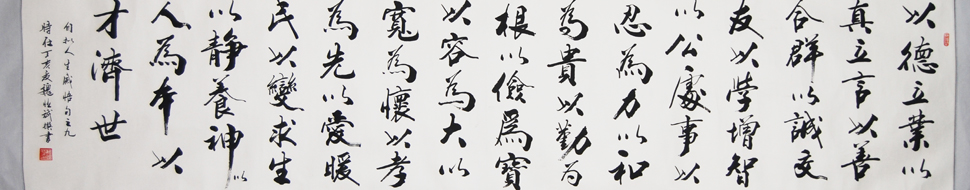 以德立業以
真立言以善
合群以誠交
友以學增智
以公處事以
忍為力以和
為貴以勤為
根以儉為寶
以容為大以
寬為懷以孝
為先以愛暖
民以變求生
以靜養神以
人為本以
才濟世
句私人生感悟句之九
時在丁亥夏魏恆斌撰書